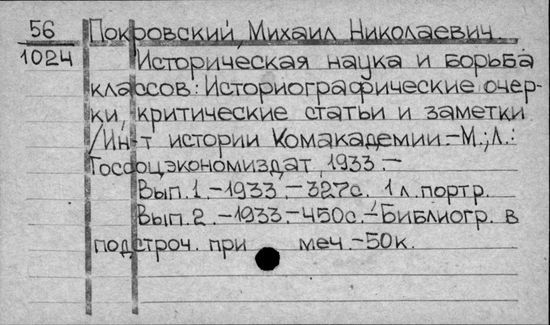 56 Покровский, Михаил Николаевич.
1024 Историческая наука и борьба
классов: Историографические очер-
ки, критические статьи и заметки
/Ин-т истории Комакадемии.-М.;Л.:
Госсоцэкономиздат, 1933.-
Вып.1.-1933.-327с. 1 л.портр.
Вып.2.-1933.-450с.-Библиогр. в
подстроч. при меч.-50к.